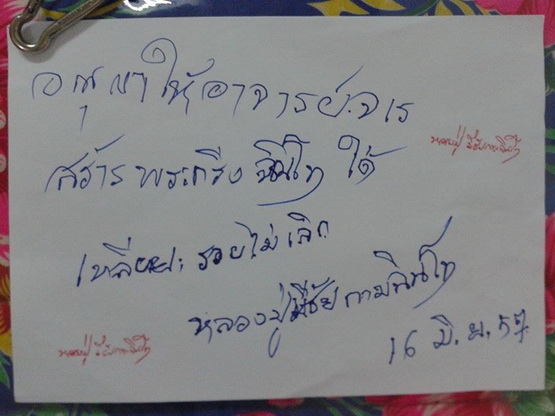 อนุญาให้อาจารย์จร
สร้างพระกริ่ง ฉินโท ได้
เหลี่ยม: รวยไม่เลิก
หลวงปู่มีชัย กามฉินโท
16 มิ.ย. 57
หลวงปู่ มีชัยกามฉินโท
หลวงปู่ มีชัยกามฉินโท